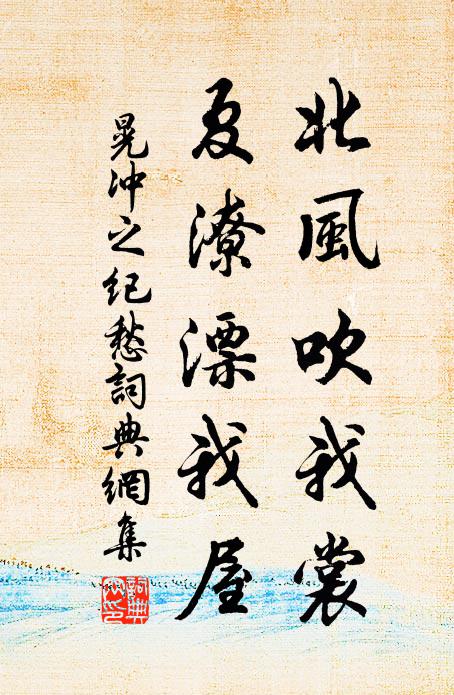 北風吹我裳
夏潦漂我屋
晁沖之紀愁詞典網集